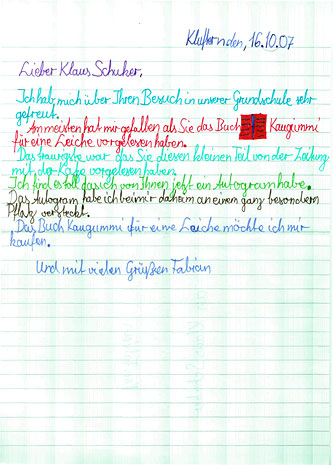 Kluftern den, 16.10.07
Lieber Klaus Schuker,
Ich hab mich über Ihren Besuch in unserer Grundschule sehr
gefreut.
Am meisten hat mir gefallen als Sie das Buch Kaugummi
für eine Leiche vorgelesen haben.
Das traurigste war das Sie diesen kleinen Teil von der Zeitung
mit der Katze vorgelesen haben.
Ich find es toll das ich von Ihnen jetzt ein Autogram habe.
Das Autogram habe ich bei mir daheim an einem ganz besondern
Platz versteckt.
Das Buch Kaugummi für eine Leiche möchte ich mir
kaufen.
Und mit vielen Grüßen Fabian